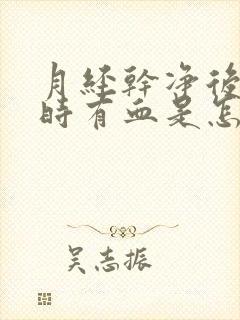 月经幹净後
時有血是怎
吴志振